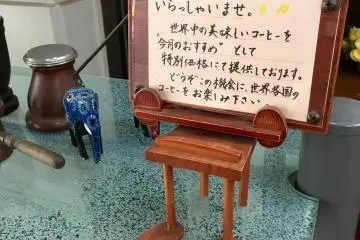 いらっしゃいませ。
世界中の美味しいコーヒーを
"今月のおすすめ"として
特別価格にて提供しております。
どうぞこの機会に、世界各国の
コーヒーをお楽しみ下さい